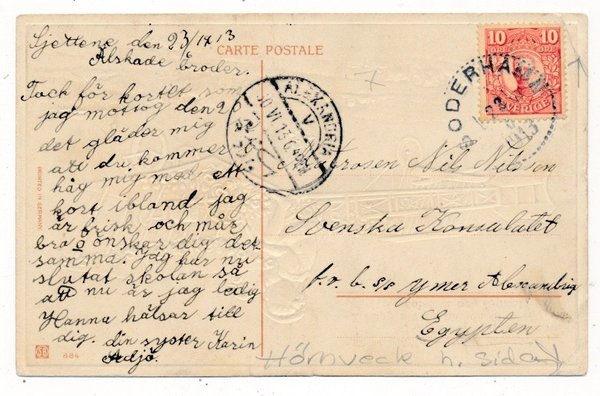 CARTE POSTALE
Sjettene den 23/4 13
Älskade Broder.
Tack för kortet som
jag mottog den 20
det gläder mig
att du kommer
håg mig med ett
kort ibland jag
är frisk och mår
bra o önskar dig det
samma. Jag har nu
slutat skolan så
att nu är jag ledig
Hanna hälsar till
dig. din syster Karin
Adjö.
10
10
ÖRE
ÖRE
SVERIGE
SÖDERHAMN
ALEXANDRIA
V
10 VI 13
Nils Nilsson
Svenska Konsulatet
s/s Ymer Alexandria
Egypten
Hörnveck h. sidan
PRINTED IN GERMANY
684